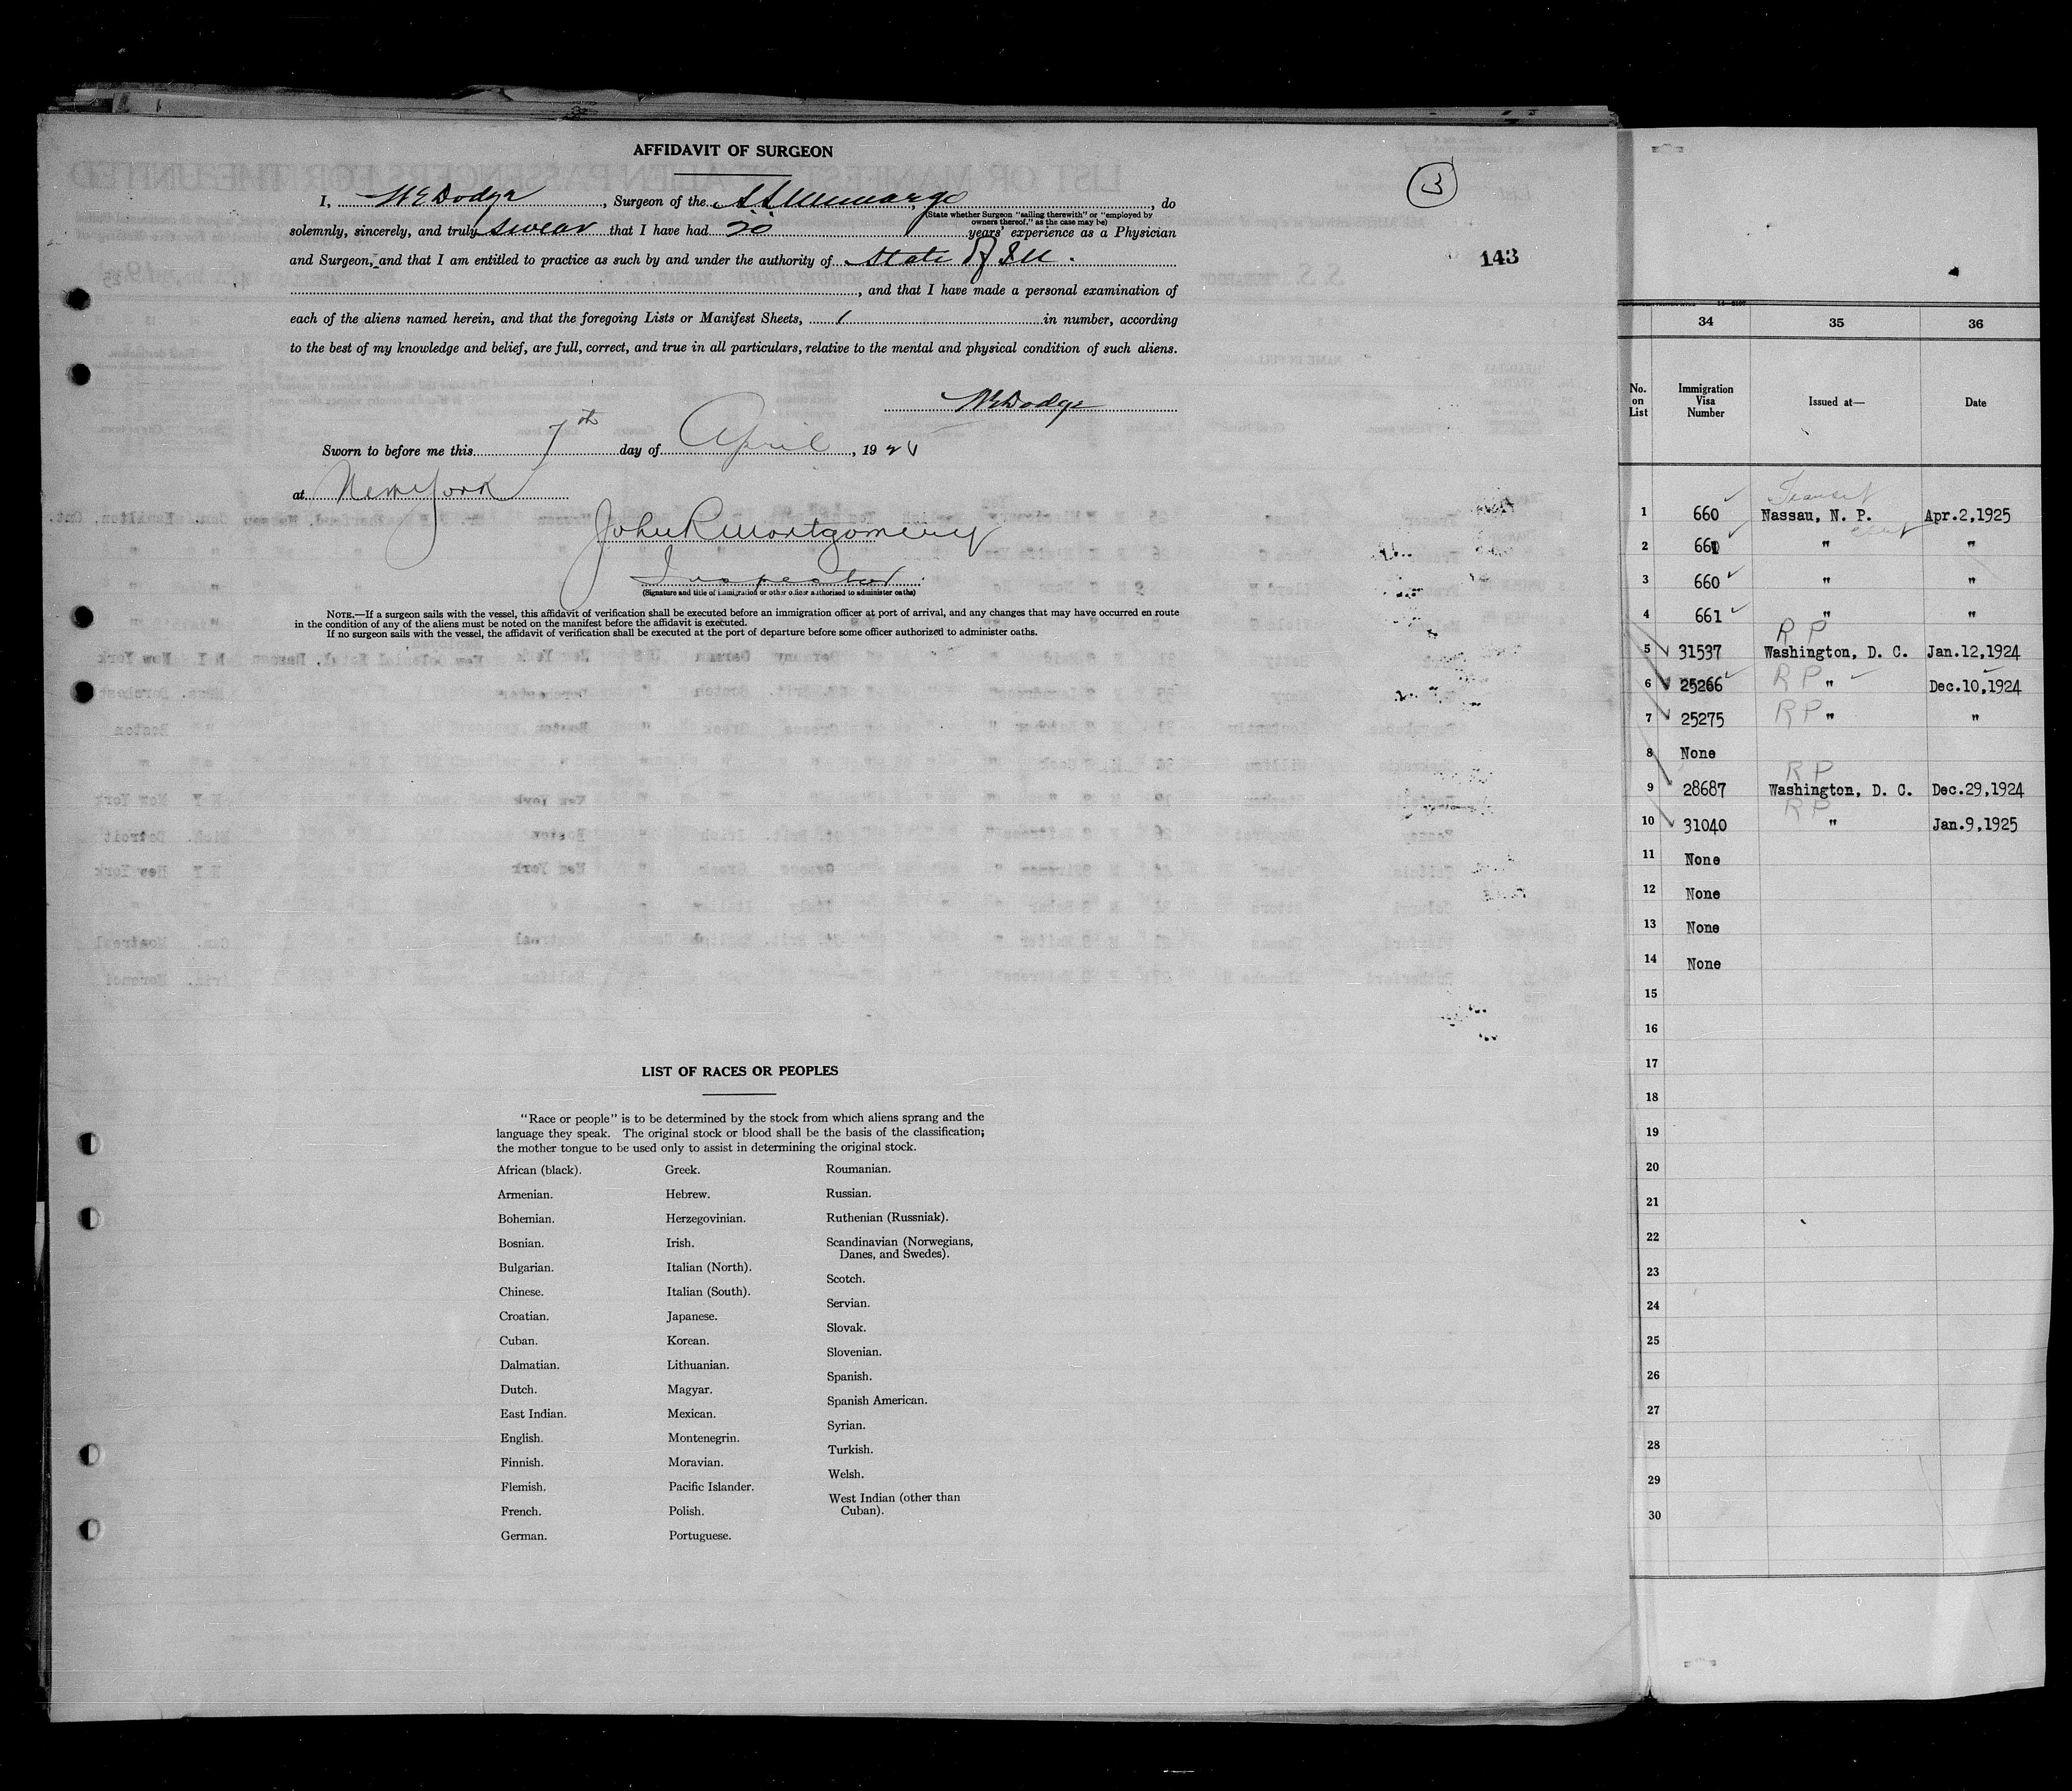 AFFIDAVIT OF SURGEON
3
143
I, W E Dodge, Surgeon of the S.S. Munargo, do
(State whether Surgeon "sailing therewith" or "employed by
owners thereof," as the case may be)
solemnly, sincerely, and truly swear that I have had 20 years' experience as a Physician
and Surgeon, and that I am entitled to practice as such by and under the authority of State of Ill.
, and that I have made a personal examination of
each of the aliens named herein, and that the foregoing Lists or Manifest Sheets, 1 in number, according
to the best of my knowledge and belief, are full, correct, and true in all particulars, relative to the mental and physical condition of such aliens.
W E Dodge
Sworn to before me this 7th day of April, 192
at New York
John R Montgomery
Inspector
(Signature and title of immigration or other officer authorized to administer oaths)
NOTE.—If a surgeon sails with the vessel, this affidavit of verification shall be executed before an immigration officer at port of arrival, and any changes that may have occurred en route
in the condition of any of the aliens must be noted on the manifest before the affidavit is executed.
If no surgeon sails with the vessel, the affidavit of verification shall be executed at the port of departure before some officer authorized to administer oaths.
LIST OF RACES OR PEOPLES
"Race or people" is to be determined by the stock from which aliens sprang and the
language they speak. The original stock or blood shall be the basis of the classification;
the mother tongue to be used only to assist in determining the original stock.
African (black).
Armenian.
Bohemian.
Bosnian.
Bulgarian.
Chinese.
Croatian.
Cuban.
Dalmatian.
Dutch.
East Indian.
English.
Finnish.
Flemish.
French.
German.
Greek.
Hebrew.
Herzegovinian.
Irish.
Italian (North).
Italian (South).
Japanese.
Korean.
Lithuanian.
Magyar.
Mexican.
Montenegrin.
Moravian.
Pacific Islander.
Polish.
Portuguese.
Roumanian.
Russian.
Ruthenian (Russniak).
Scandinavian (Norwegians,
Danes, and Swedes).
Scotch.
Servian.
Slovak.
Slovenian.
Spanish.
Spanish American.
Syrian.
Turkish.
Welsh.
West Indian (other than
Cuban).
34 35 36
No. on List Immigration Visa Number Issued at— Date
Transit
1 660 Nassau, N. P. Apr.2,1925
2 661 " "
3 660 " "
4 661 " "
R P
5 31537 Washington, D. C. Jan.12,1924
6 25266 R P " Dec.10,1924
7 25275 R P " "
8 None
R P
9 28687 Washington, D. C. Dec.29,1924
R P
10 31040 " Jan.9,1925
11 None
12 None
13 None
14 None
15
16
17
18
19
20
21
22
23
24
25
26
27
28
29
30